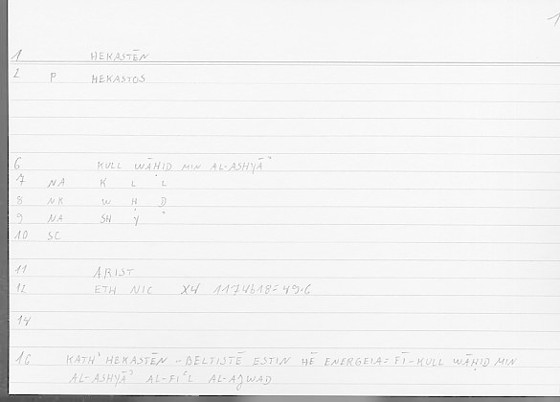 1
1 HEKASTĒN
2 P HEKASTOS
6 KULL WĀḤID MIN AL-ASHYĀʾ
7 NA K L L
8 NR W Ḥ D
9 NA SH Y ʾ
10 SC
11 ARIST
12 ETH NIC X4 1174b18=49.6
14
16 KATHʾ HEKASTĒN - BELTISTĒ ESTIN HĒ ENERGEIA= FĪ-KULL WĀḤID MIN
AL-ASHYĀʾ AL-FIʿL AL-AJWAD